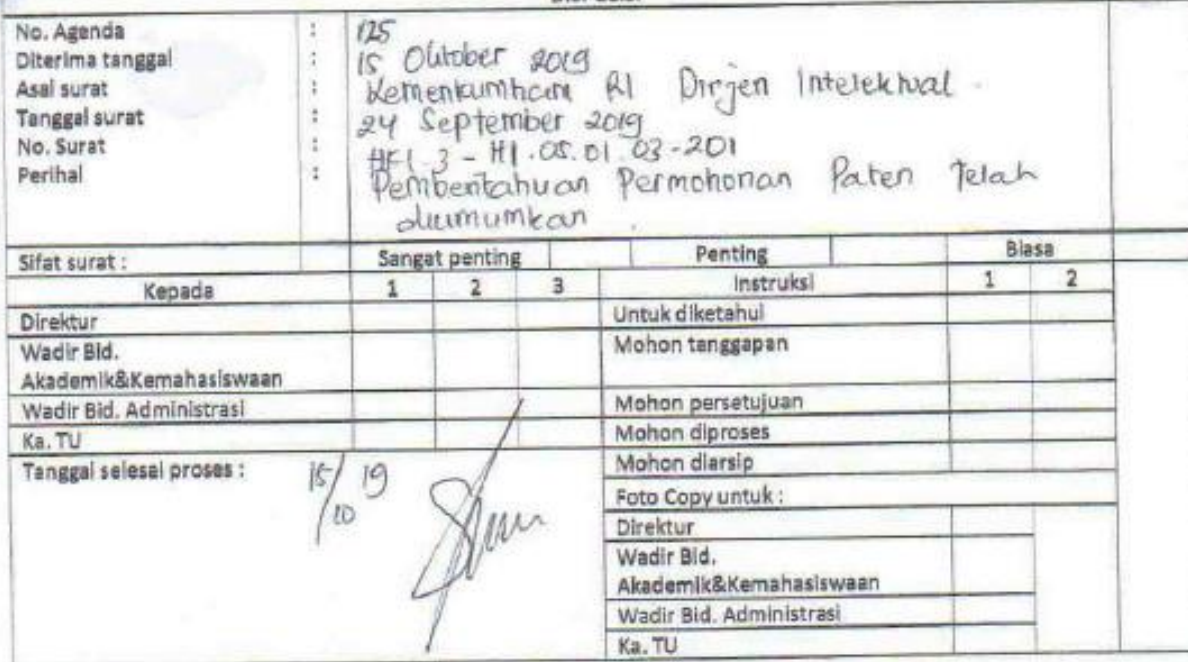 No. Agenda : 125
Diterima tanggal : 15 Oktober 2019
Asal surat : Kemenkumham RI Dirjen Intelektual.
Tanggal surat : 24 September 2019
No. Surat : HKI.3-HI.05.01.03-201
Perihal : Pemberitahuan Permohonan Paten Telah
diumumkan.
Sifat surat : Sangat penting Penting Biasa
Kepada 1 2 3 Instruksi 1 2
Direktur Untuk diketahui
Wadir Bid. Mohon tanggapan
Akademik&Kemahasiswaan
Wadir Bid. Administrasi Mohon persetujuan
Ka. TU Mohon diproses
Tanggal selesai proses : 15/10 19 Mohon diarsip
Foto Copy untuk :
Direktur
Wadir Bid.
Akademik&Kemahasiswaan
Wadir Bid. Administrasi
Ka. TU